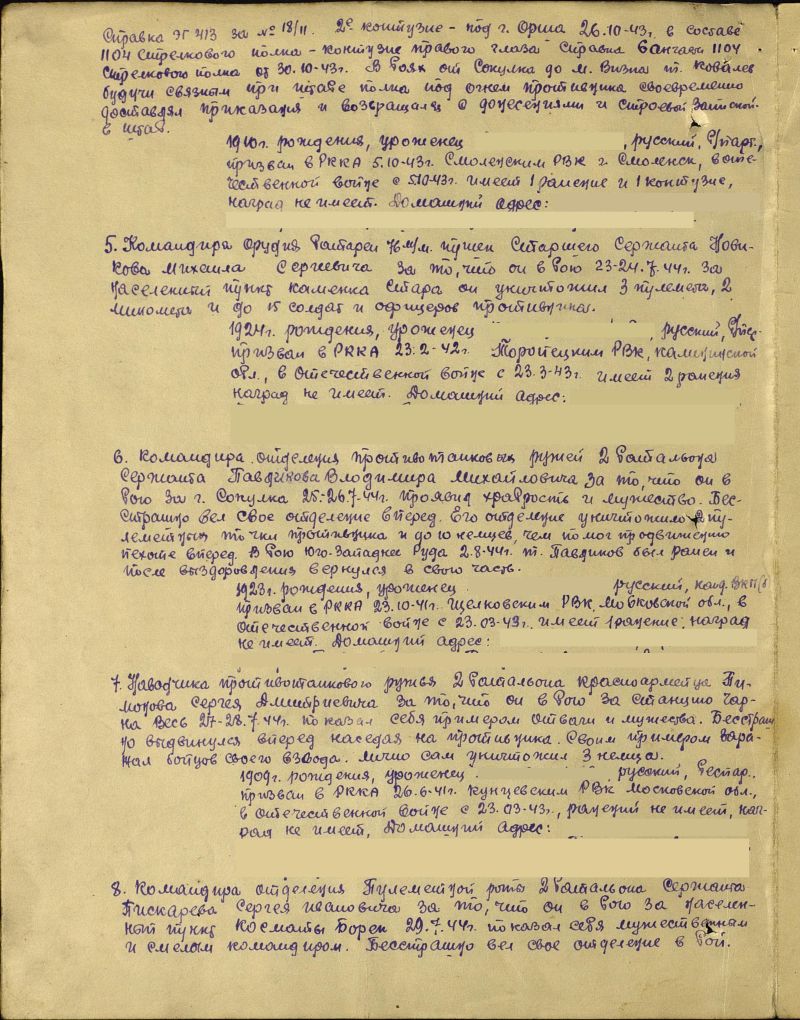 Справка ЭГ 413 за № 18/11. 2ое контузие - под г. Орша 26.10-43г. в составе
1104 стрелкового полка - контузие правого глаза справка санчасти 1104
стрелкового полка от 30.10-43г. В боях от Сокулка до м. Визна т. Ковалев
будучи связным при штабе полка под огнем противника своевременно
доставлял приказания и возвращался с донесениями и строевой запиской
в штаб.
1910г. рождения, уроженец , русский, б/парт.,
призван в РККА 5.10-43г. Смоленским РВК г. Смоленск, в оте-
чественной войне с 5.10-43г. имеет 1 ранение и 1 контузие,
наград не имеет. Домашний адрес:
5. Командира орудия батареи 76 м/м. пушек Старшего Сержанта Нови-
кова Михаила Сергиевича за то, что он в бою 23-24.7.44г. за
населенный пункт Каменка Стара он уничтожил 3 пулемета, 2
миномета и до 15 солдат и офицеров противника.
1924г. рождения, уроженец русский,
призван в РККА 23.2-42г. Торопецким РВК, Калининской
обл., в отечественной войне с 23.3-43г. имеет 2 ранения
наград не имеет. Домашний адрес:
6. Командира отделения противотанковых ружей 2 батальона
Сержанта Павликова Владимира Михайловича за то, что он в
бою за г. Сокулка 25-26.7-44г. проявил храбрость и мужество. Бес-
страшно вел свое отделение вперед. Его отделение уничтожило 2 пу-
леметных точки противника и до 10 немцев, чем помог продвижению
пехоте вперед. В бою Юго-западнее Руда 2.8-44г. т. Павликов был ранен и
после выздоровления вернулся в свою часть.
1923г. рождения, уроженец русский, канд. ВКП/б
призван в РККА 23.10-41г. Щелковским РВК, Московской обл., в
отечественной войне с 23.03-43г. имеет 1 ранение, наград
не имеет. Домашний адрес:
7. Наводчика противотанкового ружья 2 батальона красноармейца
Сергея Дмитриевича за то, что он в бою за станцию Чар-
на Весь 27-28.7.44г. показал себя примером отваги и мужества. Бесстраш
но выдвинулся вперед наседая на противника. Своим примером зара-
жал бойцов своего взвода. Лично сам уничтожил 3 немца.
1909г. рождения, уроженец русский, беспар.,
призван в РККА 26.6-41г. Кунцевским РВК Московской обл.,
в отечественной войне с 23.03-43г., ранений не имеет, наг-
рад не имеет, Домашний адрес:
8. Командира отделения Пулеметной роты 2 батальона Сержанта
Пискарева Сергея Ивановича за то, что он в бою за населен-
ный пункт Косматы Борек 29.7.44г. показал себя мужественным
и смелым командиром. Бесстрашно вел свое отделение в бой.